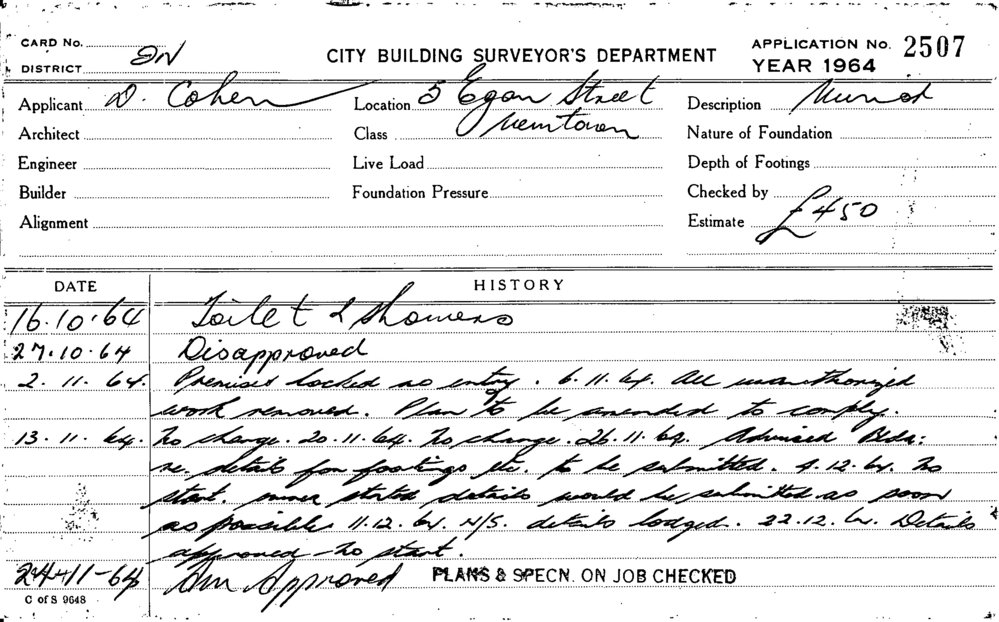 CARD No.
DISTRICT
CITY BUILDING SURVEYOR'S DEPARTMENT
APPLICATION No. 2507
YEAR 1964
Applicant D. Cohen Location 5 Egan Street Description
Architect Class Newtown Nature of Foundation
Engineer Live Load Depth of Footings
Builder Foundation Pressure Checked by
Alignment Estimate £450
DATE HISTORY
16.10.64 Toilet & Showers
27.10.64 Disapproved
2.11.64. Premises locked no entry. 6.11.64. All unauthorized
work removed. Plan to be amended to comply.
13.11.64. No change. 20.11.64. No change. 26.11.64. Advised Bldr:
re. details for footings etc. to be submitted. 4.12.64. No
start. owner stated details would be submitted as soon
as possible 11.12.64. N/S. details lodged. 22.12.64. Details
approved - No start.
24-11-64 Approved PLANS & SPECN. ON JOB CHECKED
C of S 9648